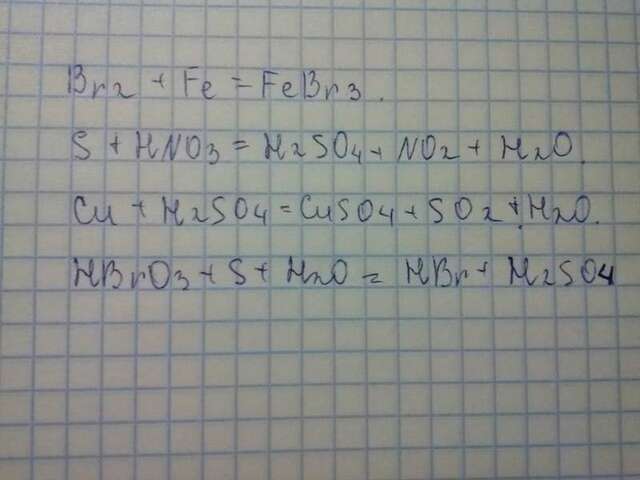 Br2 + Fe = FeBr3.
S + HNO3 = H2SO4 + NO2 + H2O.
Cu + H2SO4 = CuSO4 + SO2 + H2O.
HBrO3 + S + H2O = HBr + H2SO4